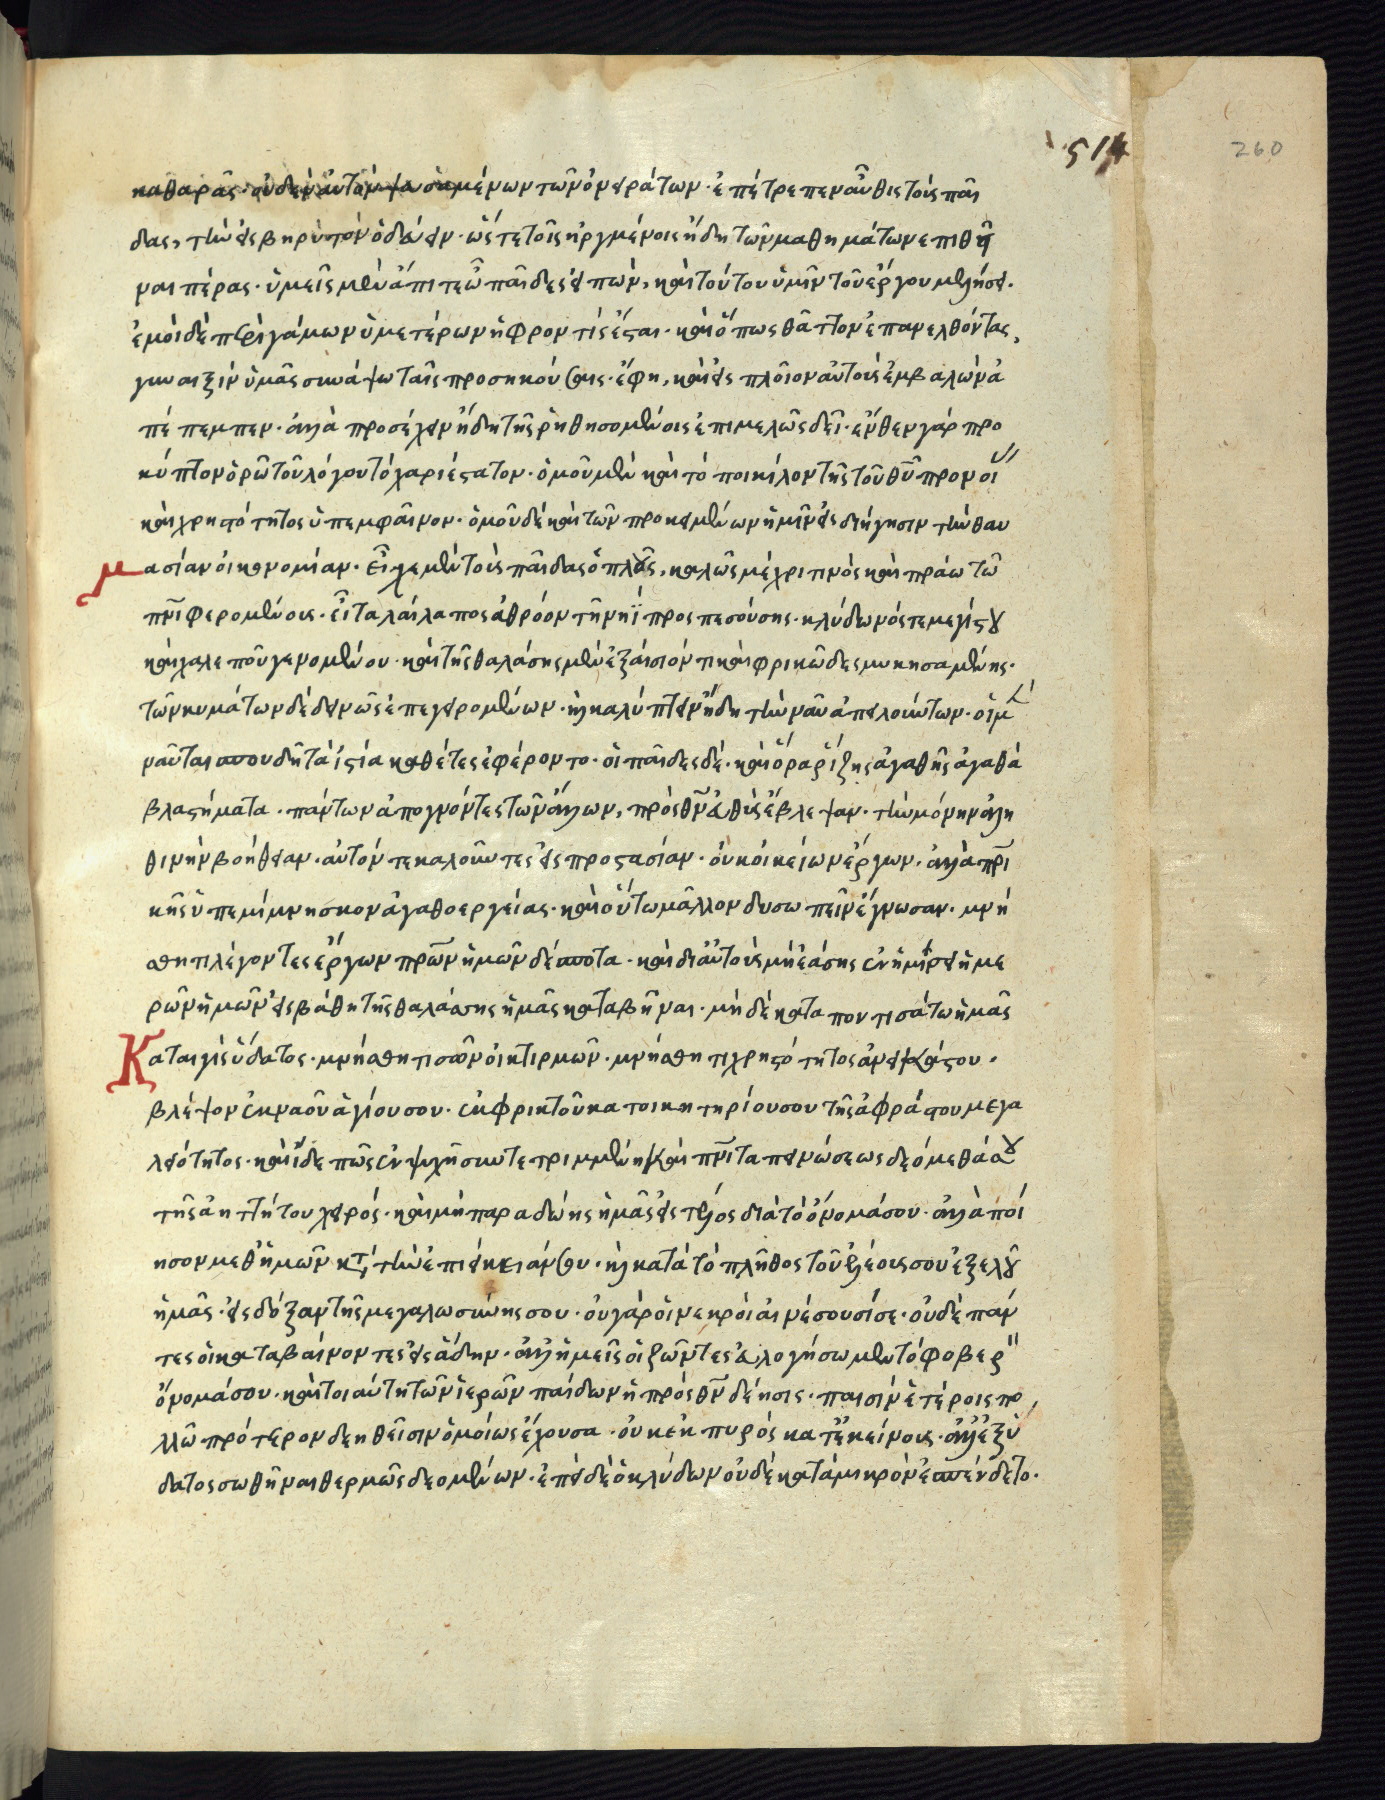 514
260
καθαρᾶς· οὐδὲν αὐτὸν μένων τῶν ὀνειράτων· ἐπέτρεπεν αὖθις τοὺς παῖ
δας, τὴν εἰς βηρυτὸν ὁδεύειν· ὥστε τοῖς ἠργμένοις ἤδη τῶν μαθημάτων ἐπιθῆ
ναι πέρας· ὑμεῖς μὲν ἄπιτε ὦ παῖδες εἰπών, καὶ τούτου ὑμῖν τοῦ ἔργου μελήσει·
ἐμοὶ δὲ περὶ γάμων ὑμετέρων ἡ φροντὶς ἔσται· καὶ ὅπως θᾶττον ἐπανελθόντας,
γυναιξὶν ὑμᾶς συνάψω ταῖς προσηκούσαις· ἔφη, καὶ εἰς πλοῖον αὐτοὺς ἐμβαλὼν ἀ
πέπεμπεν· ἀλλὰ προσέχειν ἤδη τῆς ῥηθησομένοις ἐπιμελῶς δεῖ· ἔνθεν γὰρ προ
κύπτον ὁρῶ τοῦ λόγου τὸ χαριέστατον· ὁμοῦ μὲν καὶ τὸ ποικίλον τῆς τοῦ θῦ προνοί
καὶ χρηστότητος ὑπεμφαῖνον· ὁμοῦ δὲ καὶ τῶν προκειμένων ἡμῖν εἰς διήγησιν τὴν θαυ
μασίαν οἰκονομίαν· εἶχε μὲν τοὺς παῖδας ὁ πλοῦς, καλῶς μέχρι τινὸς καὶ πράω τῶ
πνι φερομένους· εἶτα λαίλαπος ἀθρόον τῆ νηῒ προσπεσούσης· κλύδωνός τε μεγίστου
καὶ χαλεποῦ γενομένου· καὶ τῆς θαλάσης μὲν ἐξαίσιόν τι καὶ φρικῶδες μυκησαμένης·
τῶν κυμάτων δὲ δεινῶς ἐπεγειρομένων· καὶ καλύπτειν ἤδη τὴν ναῦν ἀπειλούντων· οἱ μὲν
ναῦται σπουδῆ τὰ ἱστία καθέτες ἐφέροντο· οἱ παῖδες δὲ· καὶ ὅρα ῥίζης ἀγαθῆς ἀγαθὰ
βλαστήματα· πάντων ἀπογνόντες τῶν ἄλλων, πρὸς θν εὐθὺς ἔβλεψαν· τὴν μόνην ἀλη
θινὴν βοήθειαν· αὐτόν τε καλοῦντες εἰς προστασίαν· οὐκ οἰκείων ἔργων, ἀλλὰ πρι
κῆς ὑπεμίμνησκον ἀγαθοεργείας· καὶ οὕτω μᾶλλον δυσωπεῖν ἔγνωσαν· μνή
σθητι λέγοντες ἔργων πρων ἡμῶν δέσποτα· καὶ δι αὐτοὺς μὴ ἐάσης ἐν ἡμίσει ἡμε
ρῶν ἡμῶν εἰς βάθη τῆς θαλάσσης ἡμᾶς καταβῆναι· μὴ δὲ καταποντισάτω ἡμᾶς
Καταιγὶς ὕδατος· μνήσθητι σῶν οἰκτιρμῶν· μνήσθητι χρηστότητος ἀνεικάστου·
βλέψον ἐκ ναοῦ ἁγίου σου· ἐκ φρικτοῦ κατοικητηρίου σου τῆς ἀφράστου μεγα
λειότητος· καὶ ἴδε πῶς ἐν ψυχῆ συντετριμμένη καὶ πνι ταπεινώσεως δεόμεθά σου
τῆς ἀηττήτου χειρός· καὶ μὴ παραδώης ἡμᾶς εἰς τέλος διὰ τὸ ὄνομά σου· ἀλλὰ ποί
ησον μεθ ἡμῶν κατὰ τὴν ἐπιείκειάν σου· καὶ κατὰ τὸ πλῆθος τοῦ ἐλέους σου ἐξελοῦ
ἡμᾶς· εἰς δόξαν τῆς μεγαλωσύνης σου· οὐ γὰρ οἱ νεκροὶ αἰνέσουσί σε· οὐδὲ πάν
τες οἱ καταβαίνοντες εἰς ἅδην· ἀλλ ἡμεῖς οἱ ζῶντες εὐλογήσωμεν τὸ φοβερ
ὄνομά σου· καὶ τοιαύτη τῶν ἱερῶν παίδων ἡ πρὸς θν δέησις· παισὶν ἑτέροις πο
λλῶ πρότερον δεηθεῖσιν ὁμοίως ἔχουσα· οὐκ ἐκ πυρὸς κατ ἐκείνους· ἀλλ ἐξ ὕ
δατος σωθῆναι θερμῶς δεομένων· ἐπεὶ δὲ ὁ κλύδων οὐδὲ κατὰ μικρὸν ἐσπένδετο·